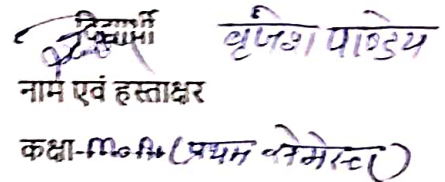 विद्यार्थी वृजेश पाण्डेय
नाम एवं हस्ताक्षर
कक्षा-M.A. (प्रथम सेमेस्टर)